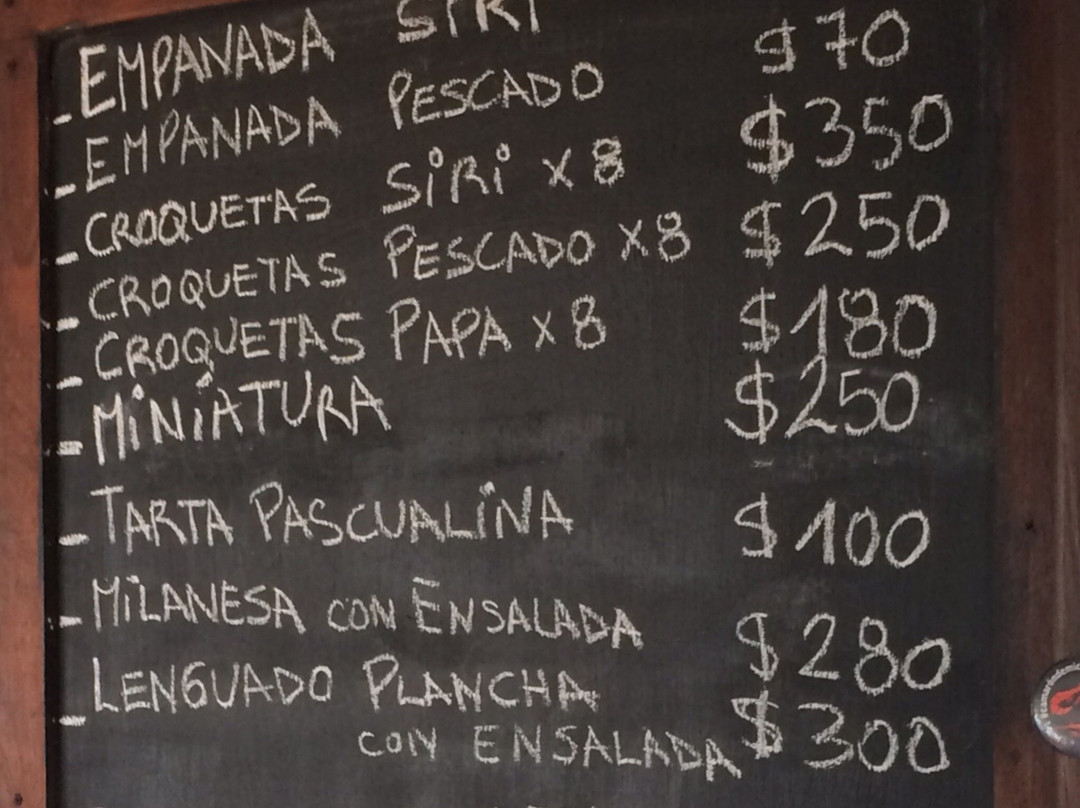 - EMPANADA SIRI
- EMPANADA PESCADO $70
- CROQUETAS SIRI X 8 $350
- CROQUETAS PESCADO X8 $250
- CROQUETAS PAPA X 8 $180
- MINIATURA $250
- TARTA PASCUALINA $100
- MILANESA CON ENSALADA $280
- LENGUADO PLANCHA
CON ENSALADA $300